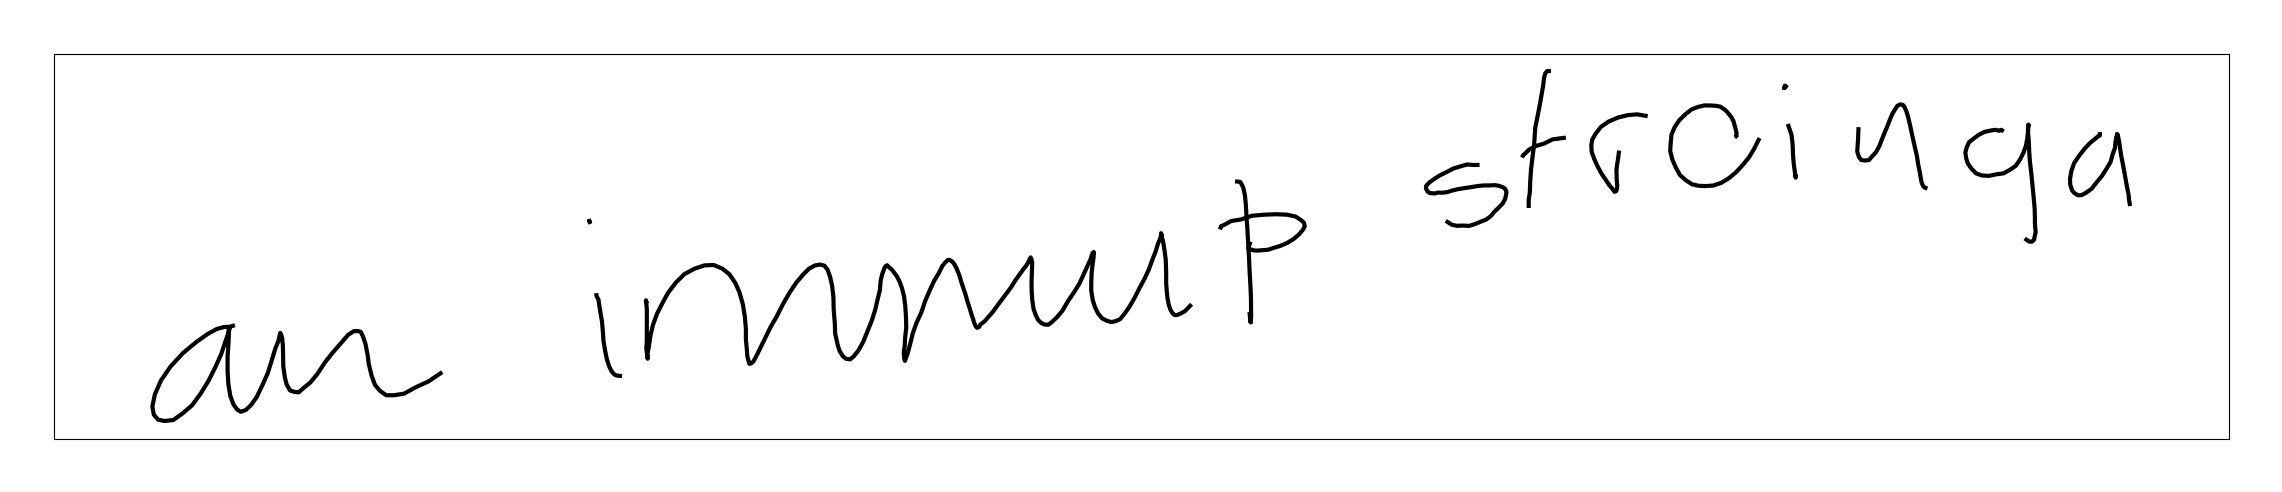 an immup stroinga